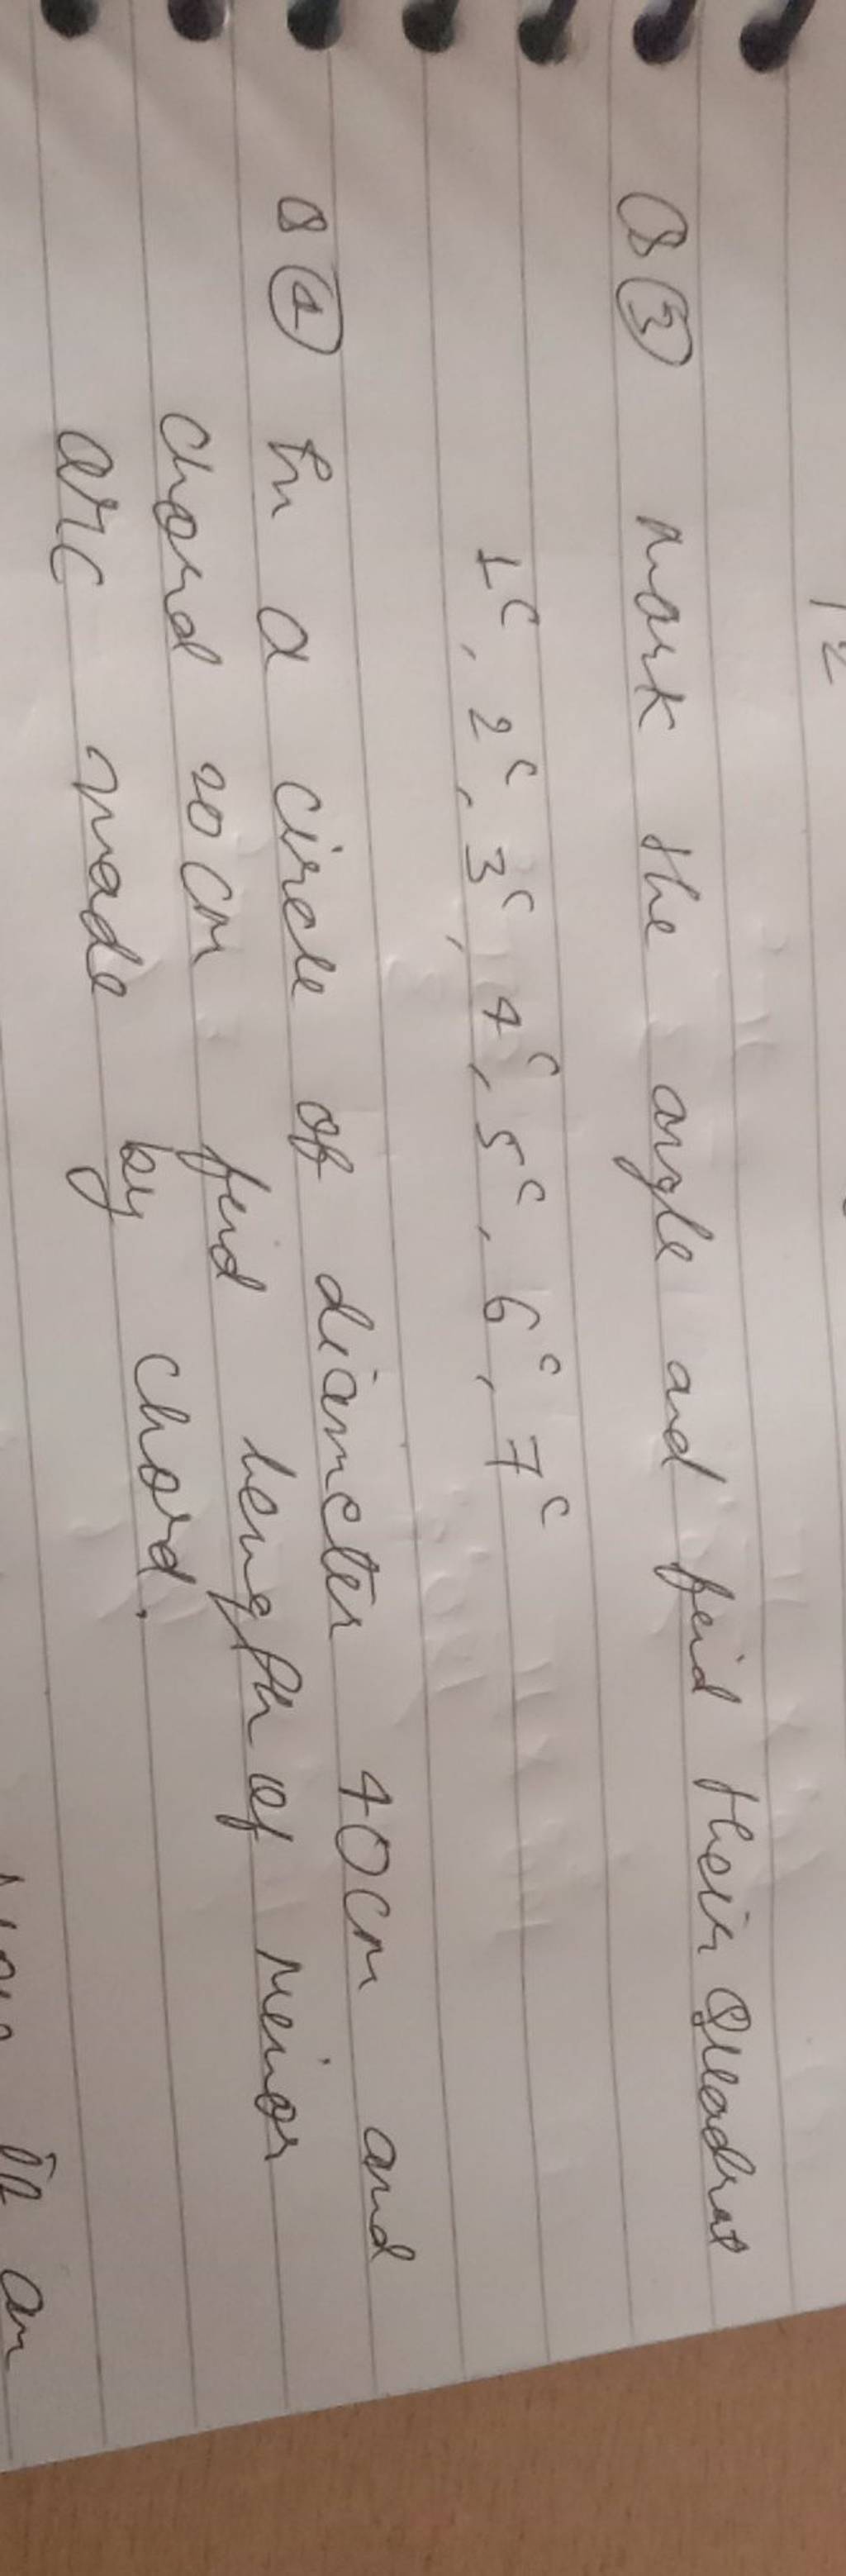 12
Q③ mark the angle and find their Quadrat
1ᶜ, 2ᶜ, 3ᶜ, 4ᶜ, 5ᶜ, 6ᶜ, 7ᶜ
Q④ In a circle of diameter 40cm and
chord 20cm find length of minor
arc made by chord.
an